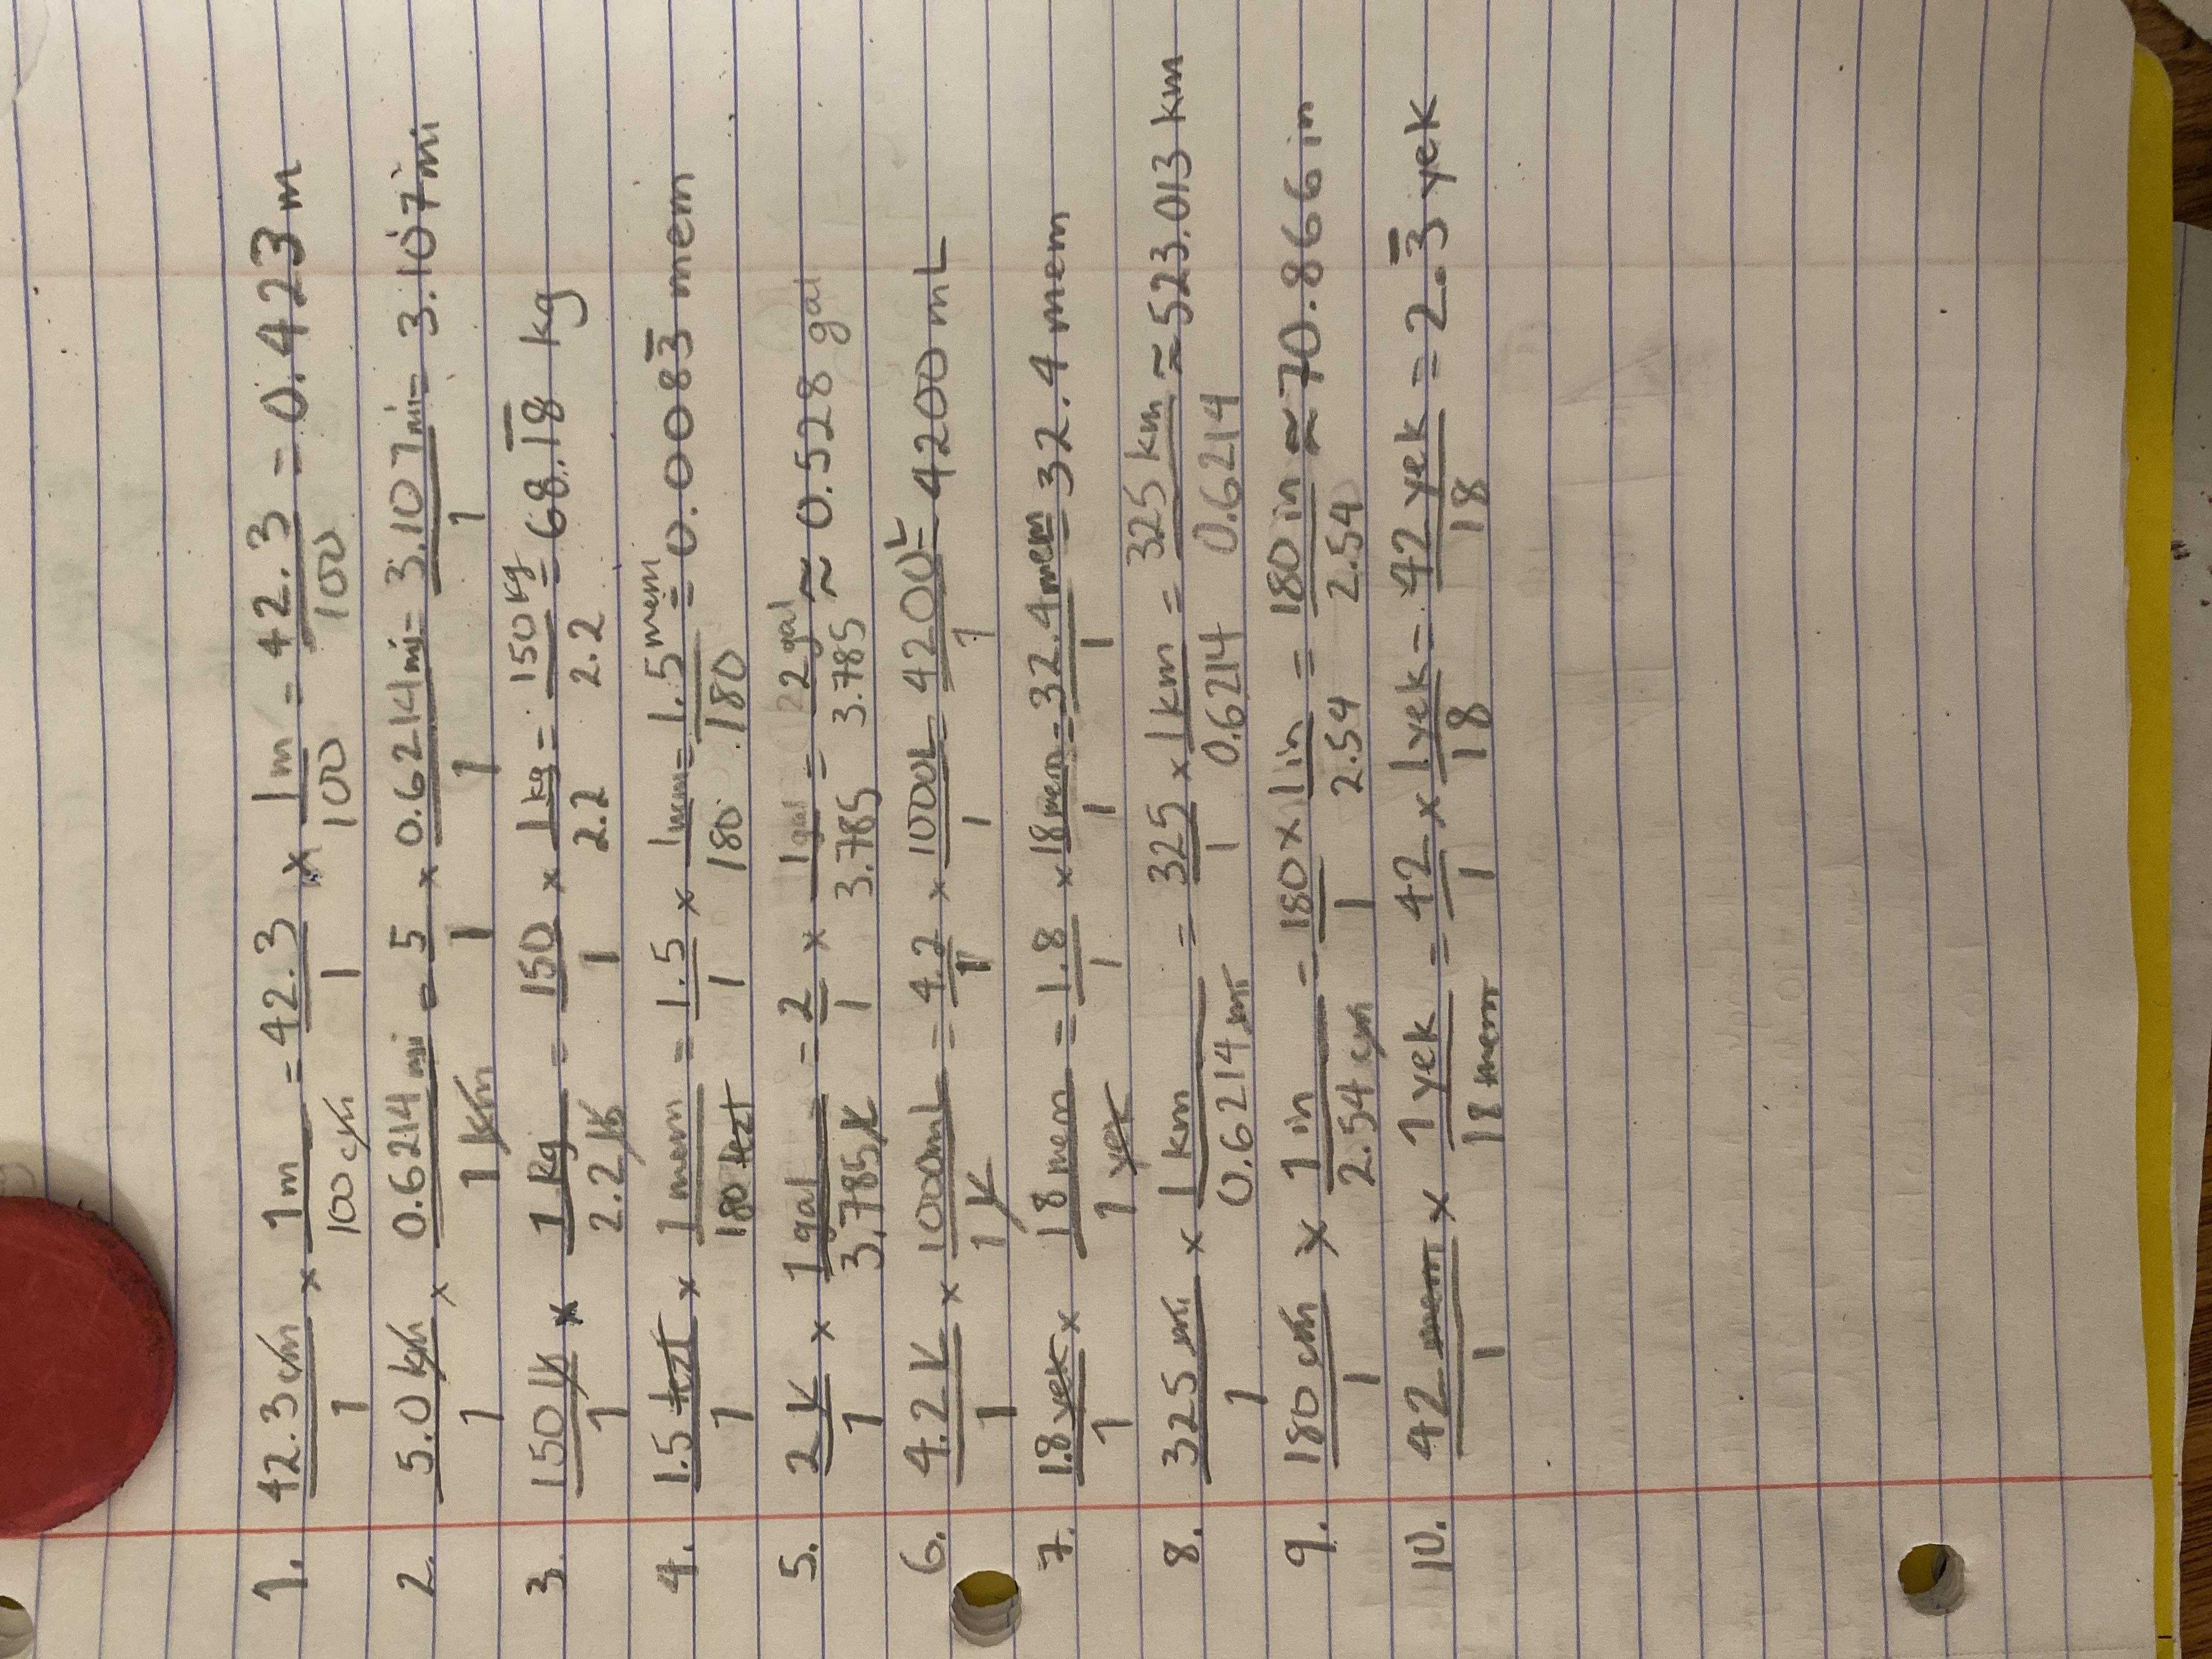 1. 42.3cm/1 × 1m/100cm = 42.3/1 × 1m/100 = 42.3/100 = 0.423m
2. 5.0km/1 × 0.6214mi/1km = 5/1 × 0.6214mi/1 = 3.107mi/1 = 3.107mi
3. 150lb/1 × 1kg/2.2lb = 150/1 × 1kg/2.2 = 150kg/2.2 = 68.1̅8̅ kg
4. 1.5tzt/1 × 1mem/180tzt = 1.5/1 × 1mem/180 = 1.5mem/180 = 0.0083̅ mem
5. 2L/1 × 1gal/3.785L = 2/1 × 1gal/3.785 = 2gal/3.785 ≈ 0.528 gal
6. 4.2L/1 × 1000mL/1L = 4.2/1 × 1000L/1 = 4200L/1 = 4200mL
7. 1.8yek/1 × 18mem/1yek = 1.8/1 × 18mem/1 = 32.4mem/1 = 32.4mem
8. 325mi/1 × 1km/0.6214mi = 325/1 × 1km/0.6214 = 325km/0.6214 ≈ 523.013km
9. 180cm/1 × 1in/2.54cm = 180/1 × 1in/2.54 = 180in/2.54 ≈ 70.866in
10. 42mem/1 × 1yek/18mem = 42/1 × 1yek/18 = 42yek/18 = 2.3̅ yek